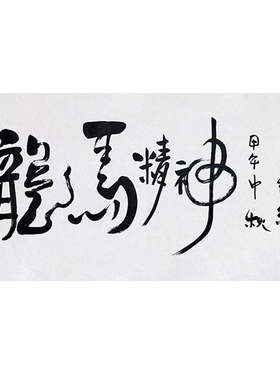 龍馬精神
甲午中秋